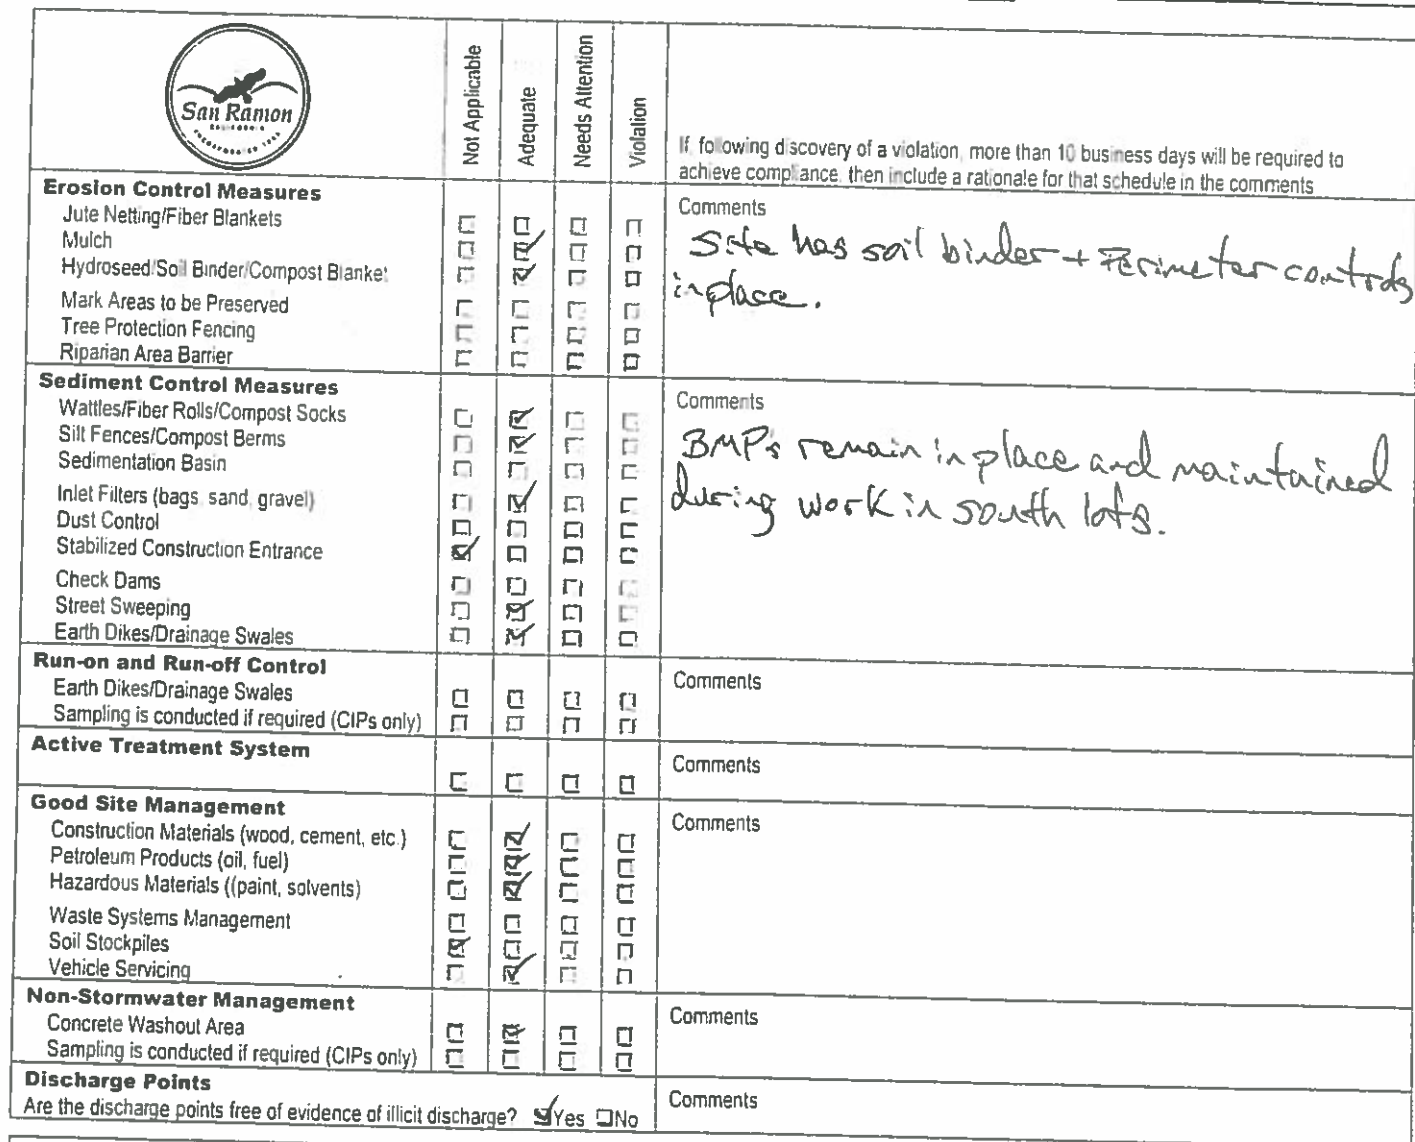 San Ramon
CALIFORNIA
INCORPORATED 1983
Not Applicable
Adequate
Needs Attention
Violation
If, following discovery of a violation, more than 10 business days will be required to
achieve compliance, then include a rationale for that schedule in the comments
Erosion Control Measures
Jute Netting/Fiber Blankets
Mulch
Hydroseed/Soil Binder/Compost Blanket
Mark Areas to be Preserved
Tree Protection Fencing
Riparian Area Barrier
Comments
Site has soil binder + Perimeter controls
in place.
Sediment Control Measures
Wattles/Fiber Rolls/Compost Socks
Silt Fences/Compost Berms
Sedimentation Basin
Inlet Filters (bags, sand, gravel)
Dust Control
Stabilized Construction Entrance
Check Dams
Street Sweeping
Earth Dikes/Drainage Swales
Comments
BMP's remain in place and maintained
during work in south lots.
Run-on and Run-off Control
Earth Dikes/Drainage Swales
Sampling is conducted if required (CIPs only)
Comments
Active Treatment System
Comments
Good Site Management
Construction Materials (wood, cement, etc.)
Petroleum Products (oil, fuel)
Hazardous Materials ((paint, solvents)
Waste Systems Management
Soil Stockpiles
Vehicle Servicing
Comments
Non-Stormwater Management
Concrete Washout Area
Sampling is conducted if required (CIPs only)
Comments
Discharge Points
Are the discharge points free of evidence of illicit discharge? Yes No
Comments